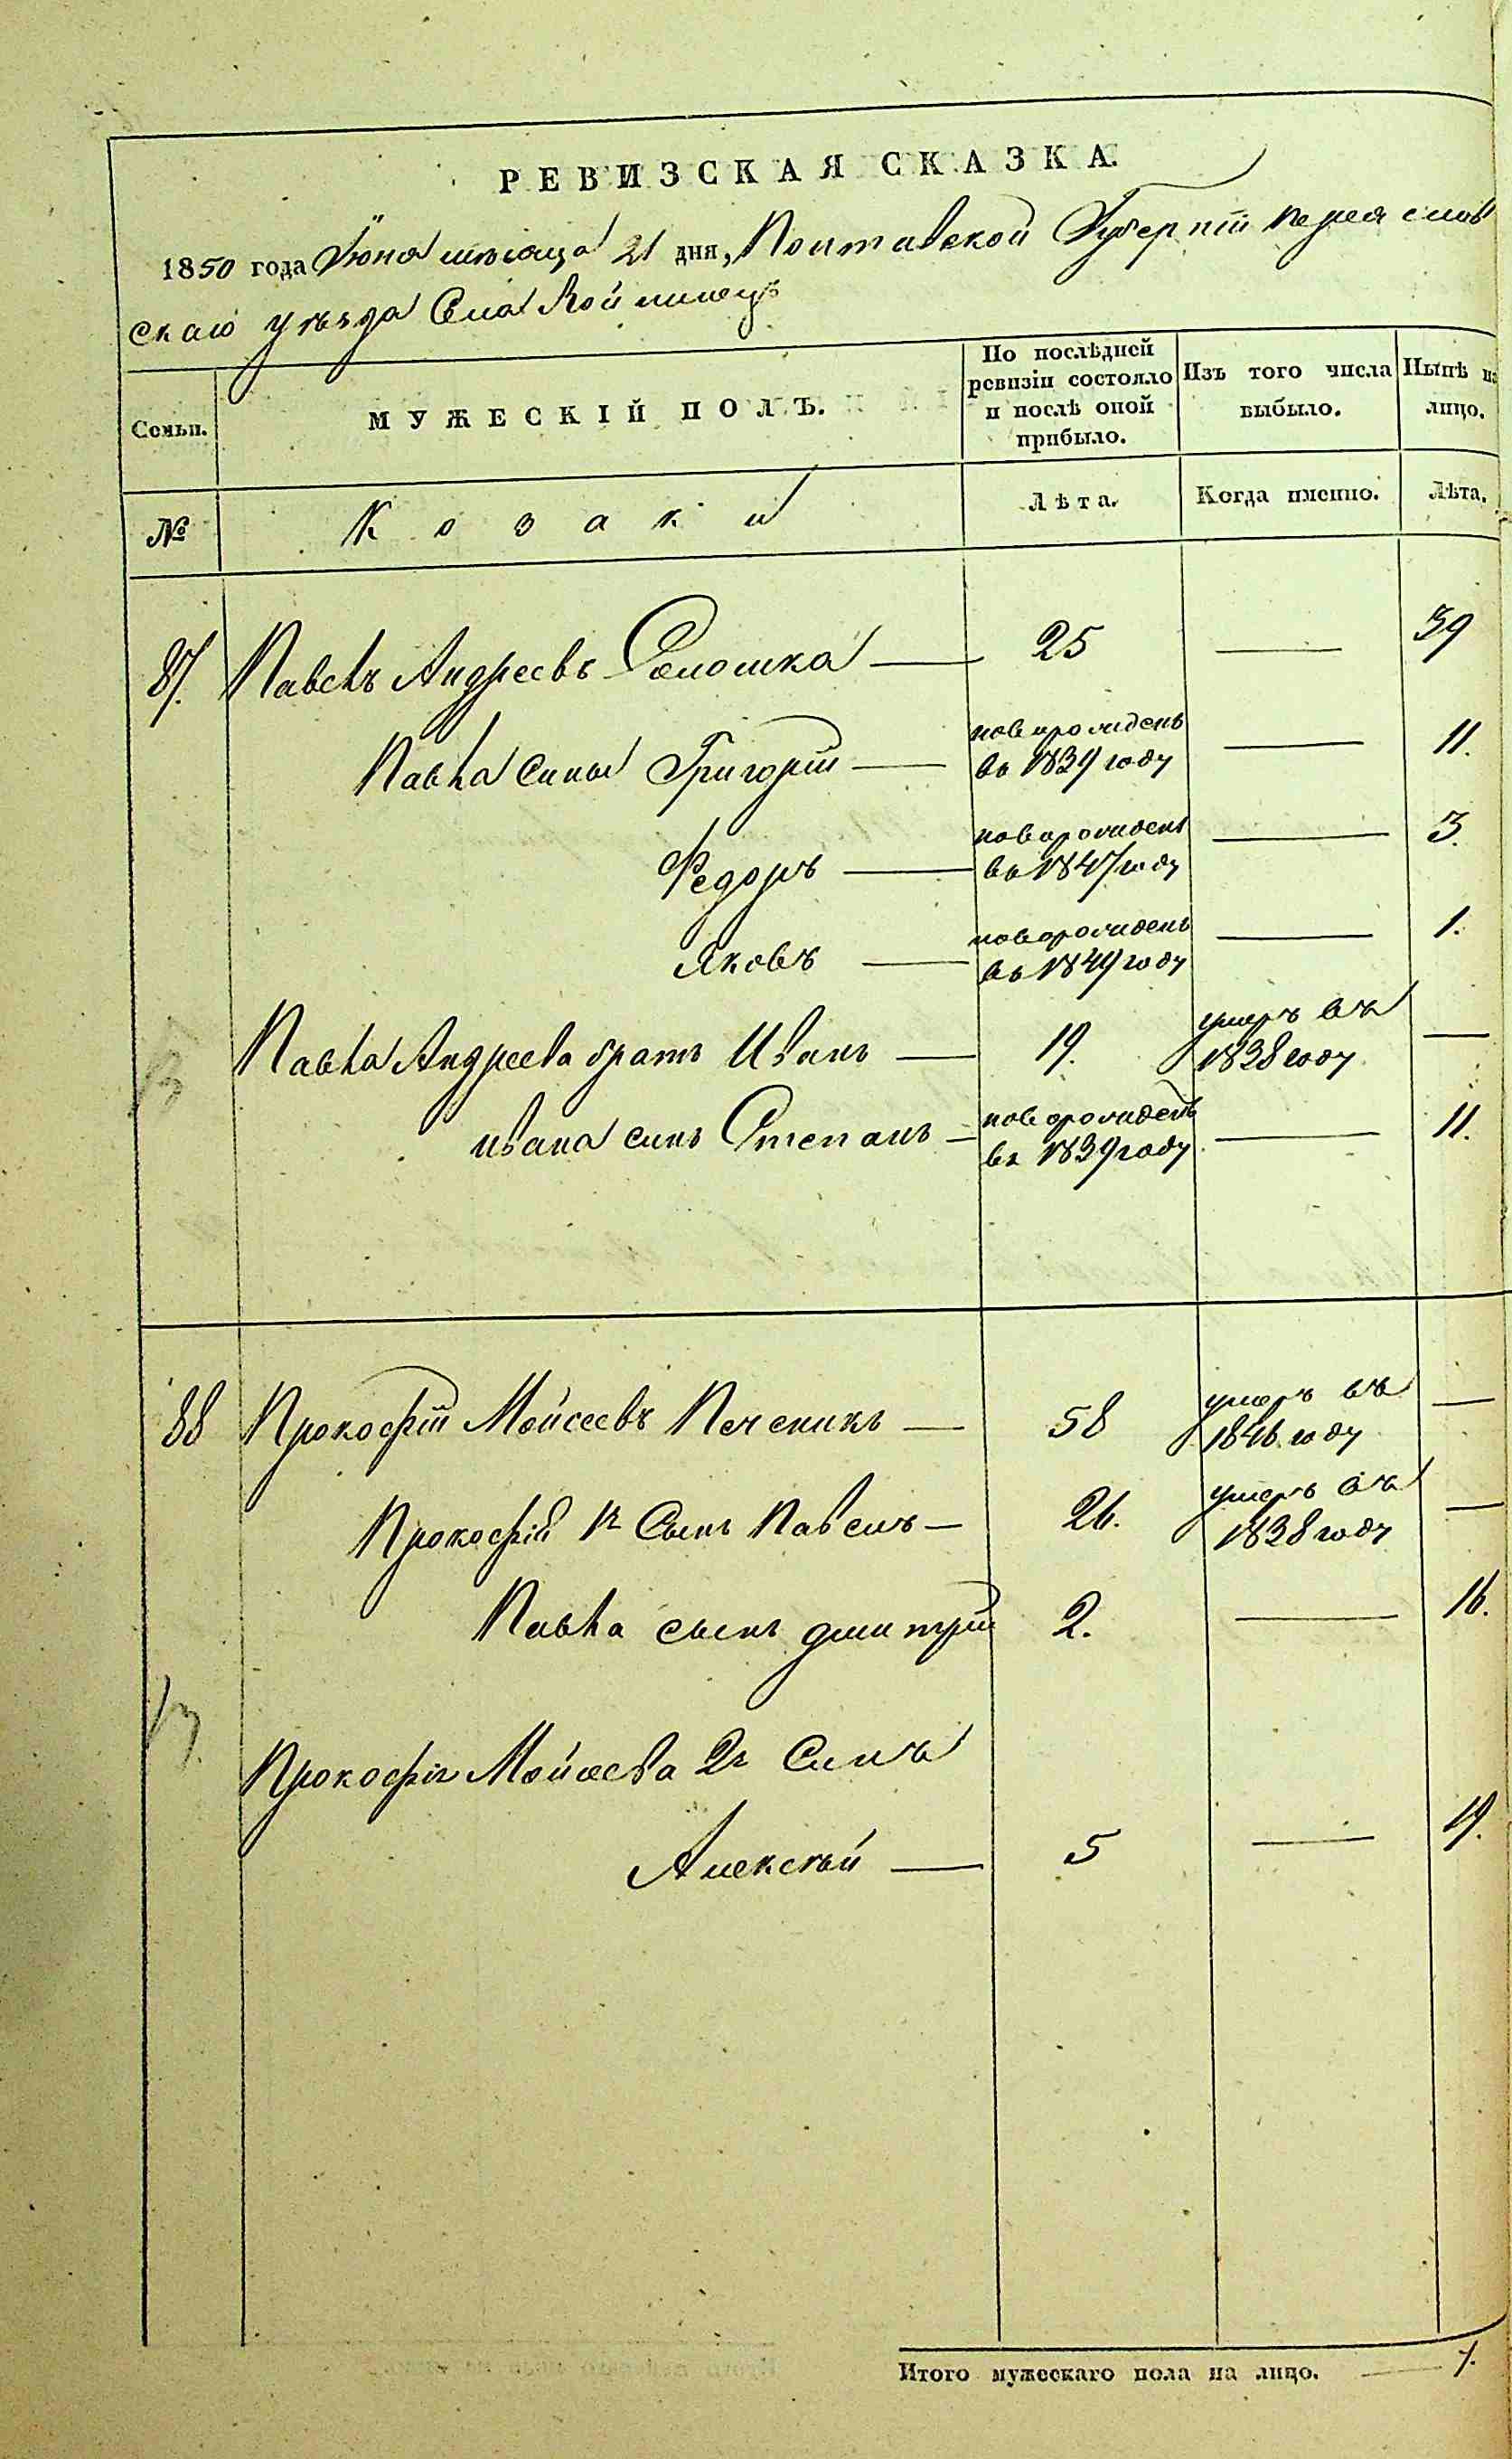 РЕВИЗСКАЯ СКАЗКА.
1850 года Іюня мѣсяца 21 дня, Полтавской Губерніи Переяслов
скаго уѣзда Села Войтовецъ
Семьи.
МУЖЕСКІЙ ПОЛЪ.
По послѣдней ревизіи состояло и послѣ оной прибыло.
Изъ того числа выбыло.
Нынѣ на лицо.
№
Козаки
Лѣта.
Когда именно.
Лѣта.
87. Павелъ Андреевъ Солошка — 25 — 39
Павла сины Григорій — новорожденъ въ 1839 году — 11.
Федоръ — новорожденъ въ 1847 году — 3.
Яковъ — новорожденъ въ 1849 году — 1.
Павла Андреева братъ Иванъ — 19. умеръ въ 1838 году —
ивана синъ Степанъ — новорожденъ въ 1839 году — 11.
88 Прокофій Мойсеевъ Печеникъ — 58 умеръ въ 1846 году —
Прокофія 1й Сынъ Павелъ — 26. умеръ въ 1838 году —
Павла сынъ дмитрій 2. — 16.
Прокофія Мойсеева 2й Синъ
Алексѣй — 5 — 19.
Итого мужескаго пола на лицо. — 7.